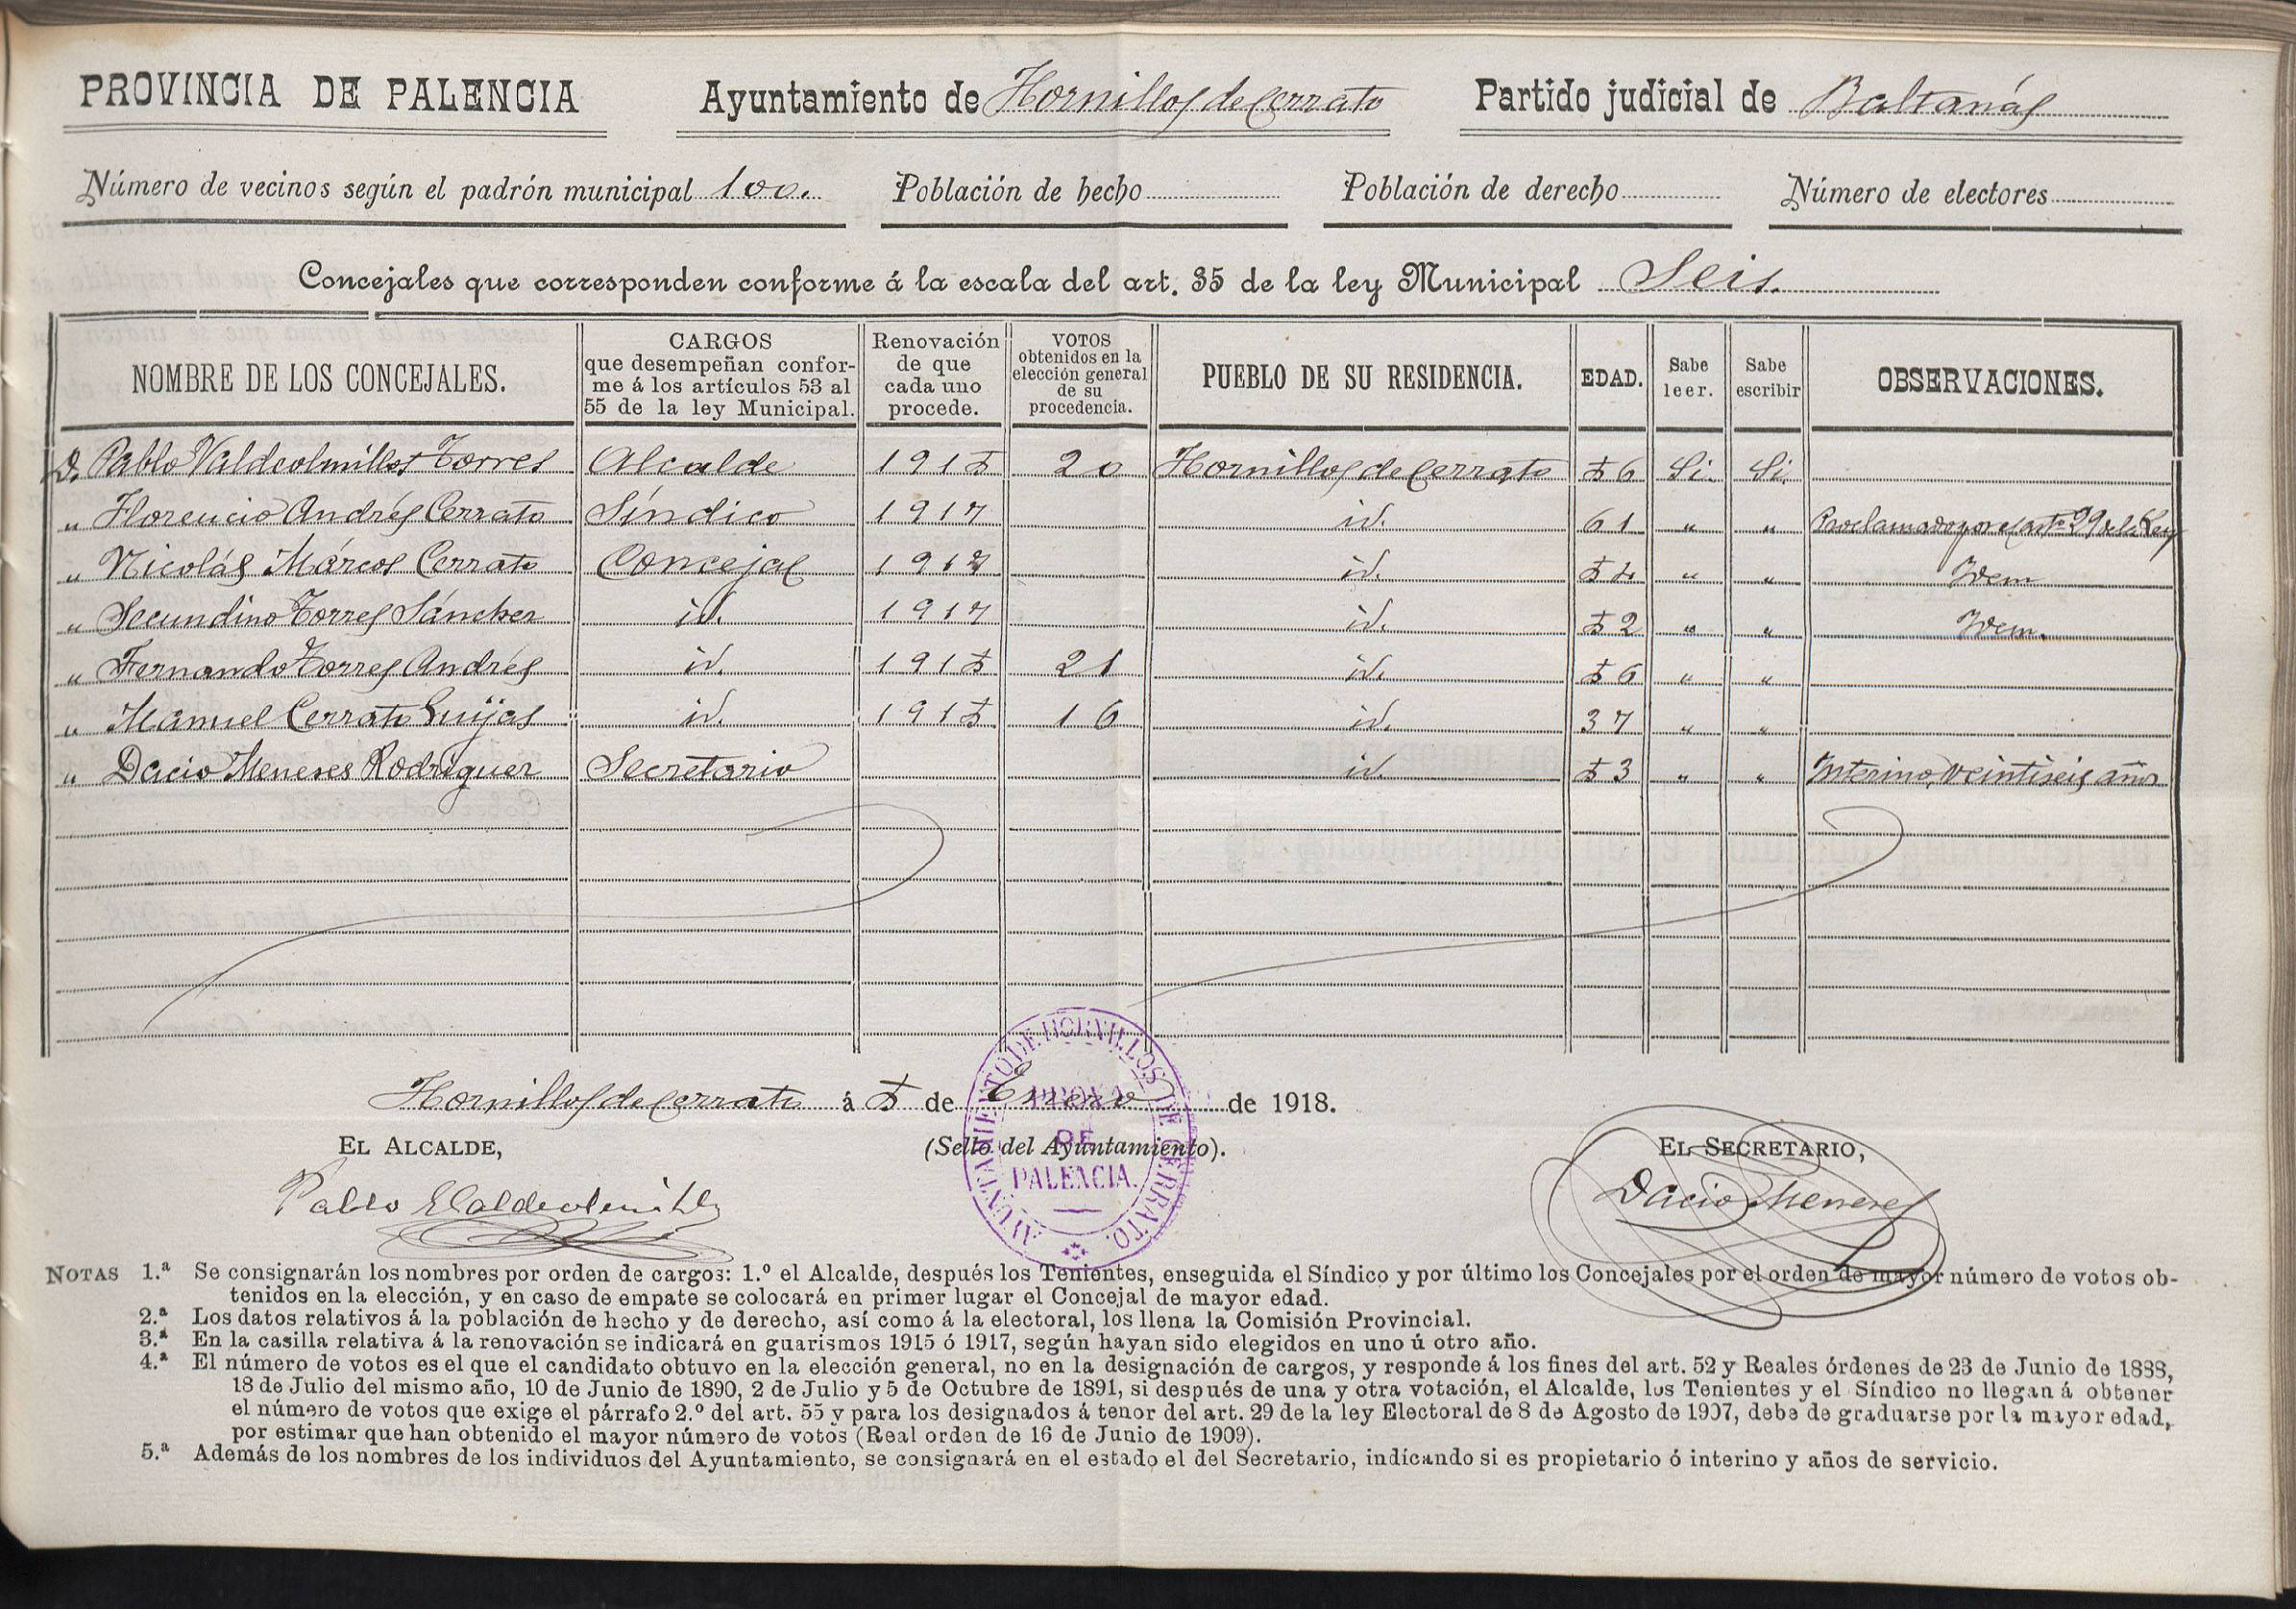 PROVINCIA DE PALENCIA Ayuntamiento de Hornillos de Cerrato Partido judicial de Baltanás
Número de vecinos según el padrón municipal 100. Población de hecho Población de derecho Número de electores
Concejales que corresponden conforme á la escala del art. 35 de la ley Municipal Seis.
NOMBRE DE LOS CONCEJALES. CARGOS que desempeñan conforme á los artículos 53 al 55 de la ley Municipal. Renovación de que cada uno procede. VOTOS obtenidos en la elección general de su procedencia. PUEBLO DE SU RESIDENCIA. EDAD. Sabe leer. Sabe escribir OBSERVACIONES.
D. Pablo Valdeolmillos Torres Alcalde 1915 20 Hornillos de Cerrato 56 Si. Si.
" Florencio Andrés Cerrato Síndico 1917 id. 61 " " Proclamado por el arto 29 de la Ley
" Nicolás Márcos Cerrato Concejal 1917 id. 54 " " Idem
" Secundino Torres Sánchez id. 1917 id. 52 " " Idem.
" Fernando Torres Andrés id. 1915 21 id. 56 " "
" Manuel Cerrato Guijas id. 1915 16 id. 37 " "
" Dacio Meneses Rodriguez Secretario id. 53 " " Interino, veintiseis años
Hornillos de Cerrato á 5 de Enero de 1918.
EL ALCALDE, (Sello del Ayuntamiento). EL SECRETARIO,
AYUNTAMIENTO DE HORNILLOS DE CERRATO.
PROVA
DE
PALENCIA.
Pablo Valdeolmillos Dacio Meneses
NOTAS 1.ª Se consignarán los nombres por orden de cargos: 1.º el Alcalde, después los Tenientes, enseguida el Síndico y por último los Concejales por el orden de mayor número de votos ob-
tenidos en la elección, y en caso de empate se colocará en primer lugar el Concejal de mayor edad.
2.ª Los datos relativos á la población de hecho y de derecho, así como á la electoral, los llena la Comisión Provincial.
3.ª En la casilla relativa á la renovación se indicará en guarismos 1915 ó 1917, según hayan sido elegidos en uno ú otro año.
4.ª El número de votos es el que el candidato obtuvo en la elección general, no en la designación de cargos, y responde á los fines del art. 52 y Reales órdenes de 23 de Junio de 1888,
18 de Julio del mismo año, 10 de Junio de 1890, 2 de Julio y 5 de Octubre de 1891, si después de una y otra votación, el Alcalde, los Tenientes y el Síndico no llegan á obtener
el número de votos que exige el párrafo 2.º del art. 55 y para los designados á tenor del art. 29 de la ley Electoral de 8 de Agosto de 1907, debe de graduarse por la mayor edad,
por estimar que han obtenido el mayor número de votos (Real orden de 16 de Junio de 1909).
5.ª Además de los nombres de los individuos del Ayuntamiento, se consignará en el estado el del Secretario, indicando si es propietario ó interino y años de servicio.